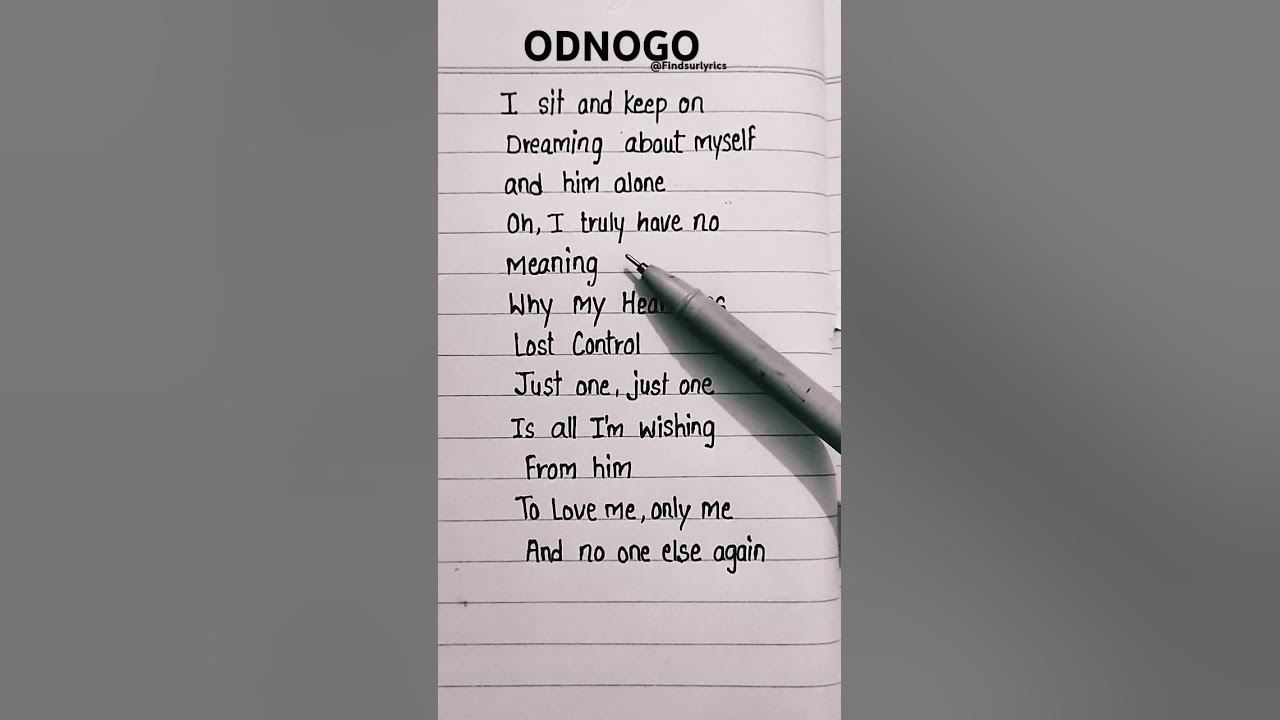 ODNOGO
@Findsurlyrics
I sit and keep on
Dreaming about myself
and him alone
Oh, I truly have no
Meaning
Why my
Lost Control
Just one, just one
Is all I'm wishing
From him
To Love me, only me
And no one else again